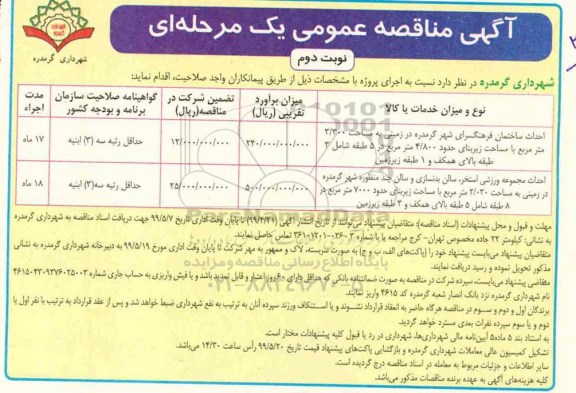 آگهی مناقصه عمومی یک مرحله‌ای
نوبت دوم
شهرداری گرمدره
شهرداری گرمدره در نظر دارد نسبت به اجرای پروژه با مشخصات ذیل از طریق پیمانکاران واجد صلاحیت، اقدام نماید:
نوع و میزان خدمات یا کالا
میزان برآورد تقریبی (ریال)
تضمین شرکت در مناقصه(ریال)
گواهینامه صلاحیت سازمان برنامه و بودجه کشور
مدت اجراء
احداث ساختمان فرهنگسرای شهر گرمدره در زمینی به مساحت ۳/۳۰۰
متر مربع با مساحت زیربنای حدود ۴/۸۰۰ متر مربع در ۵ طبقه شامل ۳
طبقه بالای همکف و ۱ طبقه زیرزمین
۲۴۰/۰۰۰/۰۰۰/۰۰۰
۱۲/۰۰۰/۰۰۰/۰۰۰
حداقل رتبه سه (۳) ابنیه
۱۷ ماه
احداث مجموعه ورزشی استخر، سالن بدنسازی و سالن چند منظوره شهر گرمدره
در زمینی به مساحت ۲/۰۳۰ متر مربع با مساحت زیربنای حدود ۷۰۰۰ متر مربع در
۸ طبقه شامل ۵ طبقه بالای همکف و ۳ طبقه زیرزمین
۵۰۰/۰۰۰/۰۰۰/۰۰۰
۲۵/۰۰۰/۰۰۰/۰۰۰
حداقل رتبه سه(۳) ابنیه
۱۸ ماه
مهلت و قبول و محل پیشنهادات (اسناد مناقصه): متقاضیان پیشنهاد می‌توانند از تاریخ انتشار آگهی (۹۹/۴/۳۱) تا پایان وقت اداری تاریخ ۹۹/۵/۷ جهت دریافت اسناد مناقصه به شهرداری گرمدره
به نشانی: کیلومتر ۲۲ جاده مخصوص تهران- کرج مراجعه یا با شماره ۳-۰۲۶-۳۶۱۰۱۲۰۱ تماس حاصل نمایند.
متقاضیان پیشنهاد می‌بایست پیشنهاد خود را (پاکت‌های الف، ب و ج) به صورت دربسته، لاک و ممهور به مهر شرکت تا پایان وقت اداری مورخ ۹۹/۵/۱۹ به دبیرخانه شهرداری گرمدره به نشانی
مذکور تحویل نموده و رسید دریافت نمایند.
متقاضی پیشنهاد می‌بایست، سپرده شرکت در مناقصه به صورت ضمانتنامه بانکی که حداقل دارای ۶۰ روز اعتبار و قابل تمدید باشد و یا فیش واریزی به حساب جاری شماره
نام شهرداری گرمدره نزد بانک انصار شعبه گرمدره کد ۴۶۱۵ واریز نمایند.
برندگان اول و دوم و سوم در مناقصه هرگاه حاضر به انعقاد قرارداد نشوند و یا استنکاف ورزند سپرده آنان به ترتیب به نفع شهرداری ضبط خواهد شد و پس از عقد قرارداد به ترتیب با نفر اول یا
دوم و یا سوم سپرده نفرات بعدی مسترد خواهد گردید.
به استناد بند ۵ ماده۵ آیین‌نامه مالی شهرداری‌ها، شهرداری در رد یا قبول کلیه پیشنهادات مختار است.
تشکیل کمیسیون عالی معاملات شهرداری گرمدره و بازگشایی پاکت‌های پیشنهاد قیمت تاریخ ۹۹/۵/۲۰ رأس ساعت ۱۴/۳۰ می‌باشد.
سایر اطلاعات و جزئیات مربوط به معامله در اسناد مناقصه درج گردیده است.
کلیه هزینه‌های آگهی به عهده برنده مناقصات مذکور می‌باشد.
پایگاه اطلاع رسانی مناقصه و مزایده